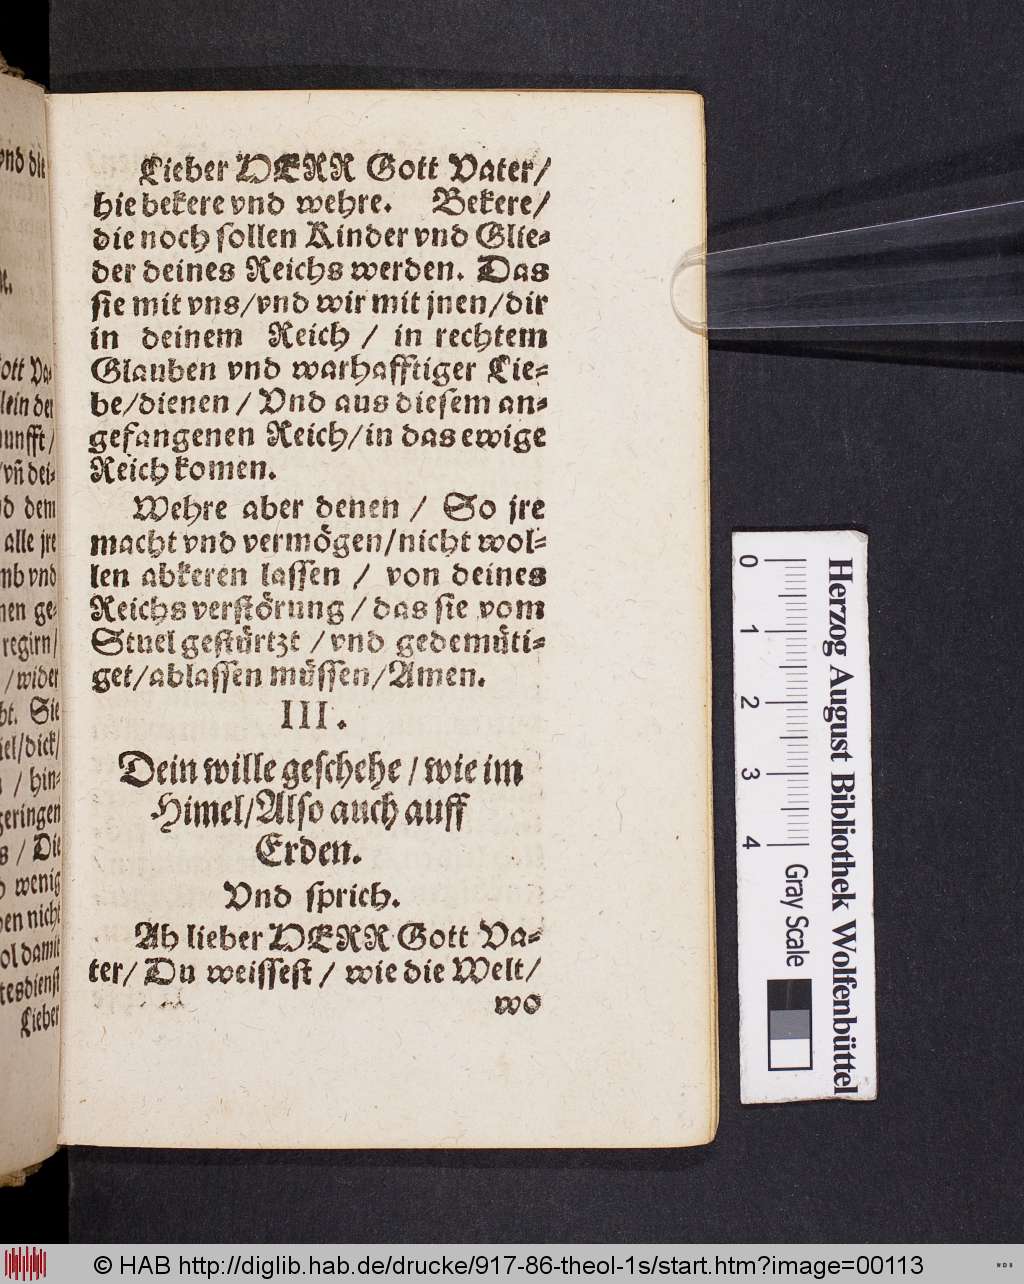 vnd die
ott Va-
lein der
nunfft/
/vñ dei-
d dem
alle jre
mb vnd
nen ge-
regirn/
/wider
bt. Sie
iel/dick/
/ hin-
geringen
s / Die
wenig
en nicht
ol damit
tesdienst
Lieber
Lieber HERR Gott Vater/
hie bekere vnd wehre. Bekere/
die noch sollen Kinder vnd Glie-
der deines Reichs werden. Das
sie mit vns/vnd wir mit jnen/dir
in deinem Reich / in rechtem
Glauben vnd warhafftiger Lie-
be/dienen / Vnd aus diesem an-
gefangenen Reich/in das ewige
Reich komen.
Wehre aber denen / So jre
macht vnd vermögen/nicht wol-
len abkeren lassen / von deines
Reichs verstörung / das sie vom
Stuel gestürtzt / vnd gedemüti-
get/ablassen müssen/Amen.
III.
Dein wille geschehe / wie im
Himel/Also auch auff
Erden.
Vnd sprich.
Ah lieber HERR Gott Va-
ter/ Du weissest / wie die Welt/
wo
0 1 2 3 4 Gray Scale
Herzog August Bibliothek Wolfenbüttel
© HAB http://diglib.hab.de/drucke/917-86-theol-1s/start.htm?image=00113